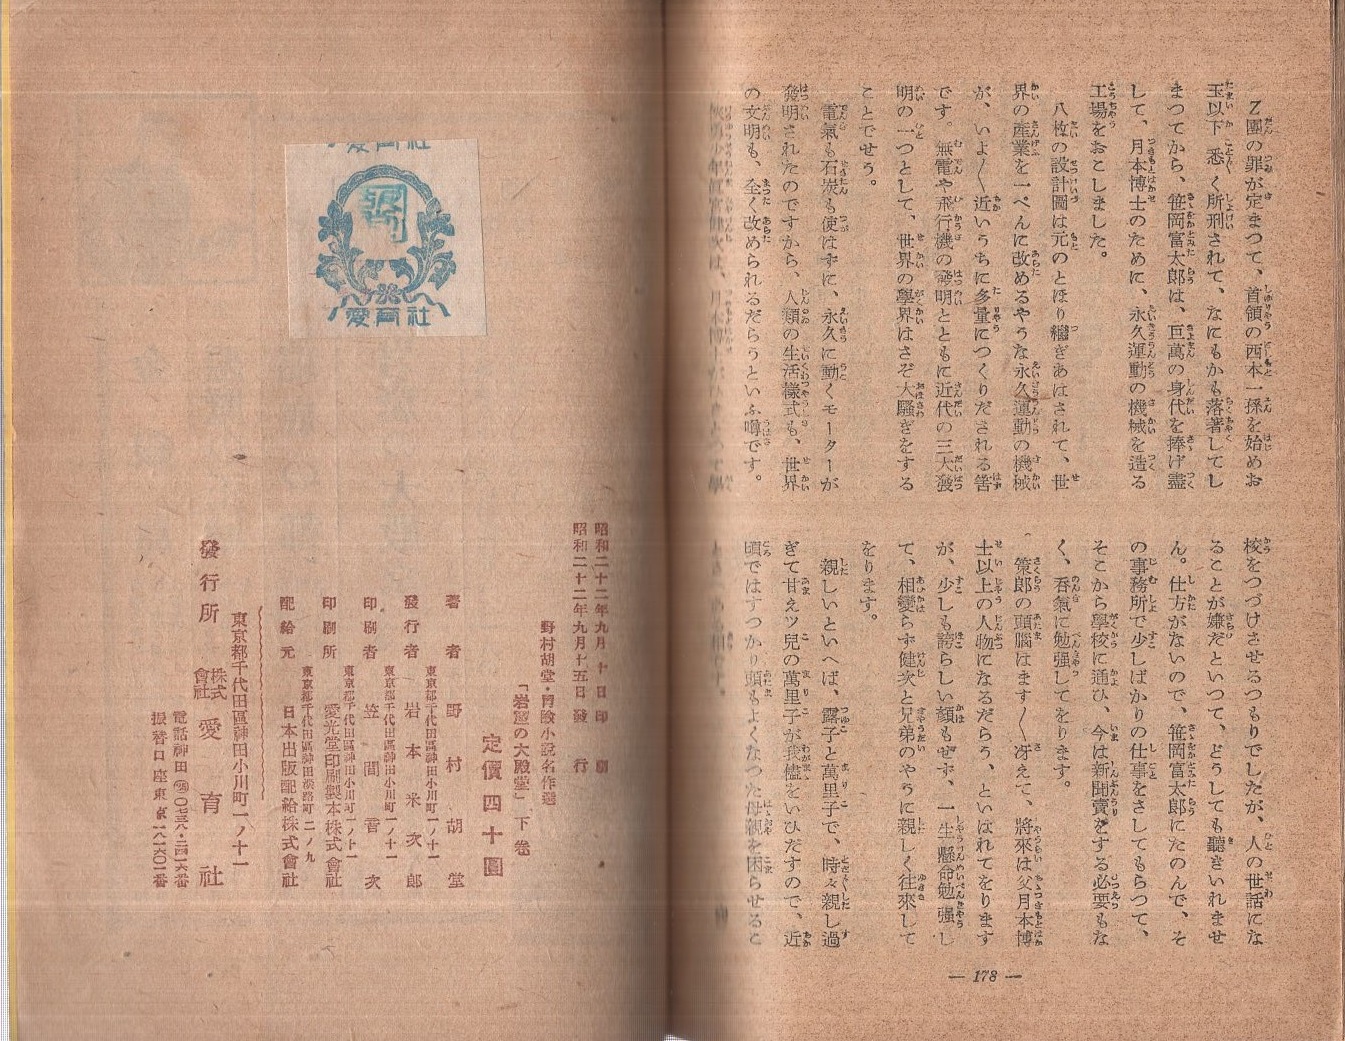 Z團の罪が定まつて、首領の西本一孫を始めお
玉以下悉く所刑されて、なにもかも落著してし
まつてから、笹岡富太郎は、巨萬の身代を捧げ盡
して、月本博士のために、永久運動の機械を造る
工場をおこしました。
八枚の設計圖は元のとほり繼ぎあはされて、世
界の産業を一ぺんに改めるやうな永久運動の機械
が、いよ〱近いうちに多量につくりだされる筈
です。無電や飛行機の發明とともに近代の三大發
明の一つとして、世界の學界はさぞ大騷ぎをする
ことでせう。
電氣も石炭も使はずに、永久に動くモーターが
發明されたのですから、人類の生活樣式も、世界
の文明も、全く改められるだらうといふ噂です。
校をつづけさせるつもりでしたが、人の世話にな
ることが嫌だといつて、どうしても聽きいれませ
ん。仕方がないので、笹岡富太郎にたのんで、そ
の事務所で少しばかりの仕事をさしてもらつて、
そこから學校に通ひ、今は新聞賣をする必要もな
く、呑氣に勉强してをります。
策郎の頭腦はます〱冴えて、將來は父月本博
士以上の人物になるだらう、といはれてをります
が、少しも誇らしい顏もせず、一生懸命勉强し
て、相變らず健次と兄弟のやうに親しく往來して
をります。
親しいといへば、露子と萬里子で、時々親し過
ぎて甘えツ兒の萬里子が我儘をいひだすので、近
頃ではすつかり頭もよくなつた母親を困らせるこ
— 178 —
愛育社
愛育社
昭和二十二年九月十日印刷
昭和二十二年九月十五日發行
野村胡堂・冒險小說名作選
「岩窟の大殿堂」下卷
定價四十圓
著者 野村胡堂
東京都千代田區神田小川町一ノ十一
發行者 岩本米次郎
東京都千代田區神田小川町一ノ十一
印刷者 笠間香次
東京都千代田區神田小川町一ノ十一
印刷所 愛光堂印刷製本株式會社
東京都千代田區神田淡路町二ノ九
配給元 日本出版配給株式會社
東京都千代田區神田小川町一ノ十一
發行所 株式會社 愛育社
電話神田㉕〇七三八・二四一六番
振替口座東京一八一六〇一番